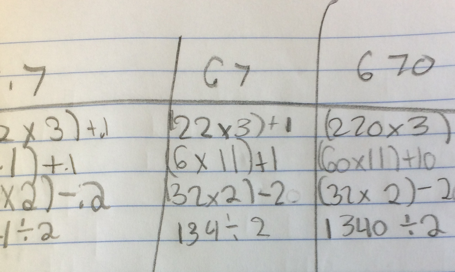 .7 67 670
2x3)+.1 (22x3)+1 (220x3)
.1)+.1 (6x11)+1 (60x11)+10
x2)-.2 (32x2)-2 (32x2)-2
1÷2 134÷2 1340÷2